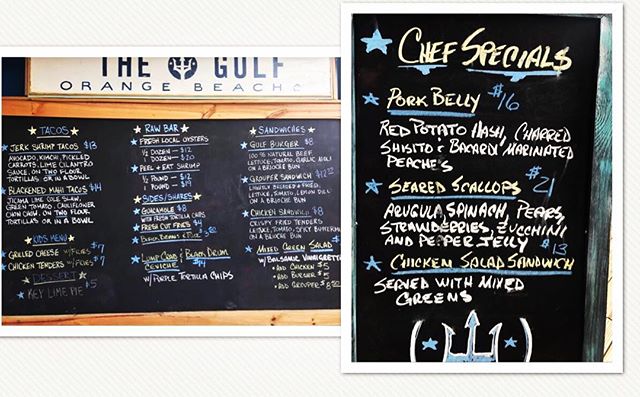 THE GULF
ORANGE BEACH
TACOS
JERK SHRIMP TACOS $13
AVOCADO, KIMCHI, PICKLED
CARROTS, LIME CILANTRO
SAUCE, ON TWO FLOUR
TORTILLAS OR IN A BOWL
BLACKENED MAHI TACOS $14
JICIMA LIME COLE SLAW,
GREEN TOMATO, CAULIFLOWER
CHOW CHOW, ON TWO FLOUR
TORTILLAS OR IN A BOWL
KIDS MENU
GRILLED CHEESE W/FRIES $7
CHICKEN TENDERS W/FRIES $7
DESSERT
KEY LIME PIE $5
RAW BAR
FRESH LOCAL OYSTERS
1/2 DOZEN — $12
1 DOZEN — $20
PEEL + EAT SHRIMP
1/2 POUND — $12
1 POUND — $19
SIDES/SHARES
GUACAMOLE $8
WITH FRESH TORTILLA CHIPS
FRESH CUT FRIES $4
BLACK BEANS + RICE
LUMP CRAB & BLACK DRUM
CEVICHE $14
W/PURPLE TORTILLA CHIPS
SANDWICHES
GULF BURGER $8
100% NATURAL BEEF,
LETTUCE, TOMATO, GARLIC AIOLI
ON A BRIOCHE BUN
GROUPER SANDWICH
LIGHTLY BREADED + FRIED,
LETTUCE, TOMATO, LEMON DILL
ON A BRIOCHE BUN
CHICKEN SANDWICH $8
CRISPY FRIED TENDERS
LETTUCE, TOMATO, SPICY BUTTERMILK
ON A BRIOCHE BUN
MIXED GREEN SALAD
W/BALSAMIC VINAIGRETTE
• ADD CHICKEN $5
• ADD BURGER $5
• ADD GROUPER
CHEF SPECIALS
PORK BELLY $16
RED POTATO HASH, CHARRED
SHISITO & BACARDI MARINATED
PEACHES
SEARED SCALLOPS $21
ARUGULA, SPINACH, PEARS,
STRAWBERRIES, ZUCCHINI
AND PEPPER JELLY
CHICKEN SALAD SANDWICH $13
SERVED WITH MIXED
GREENS